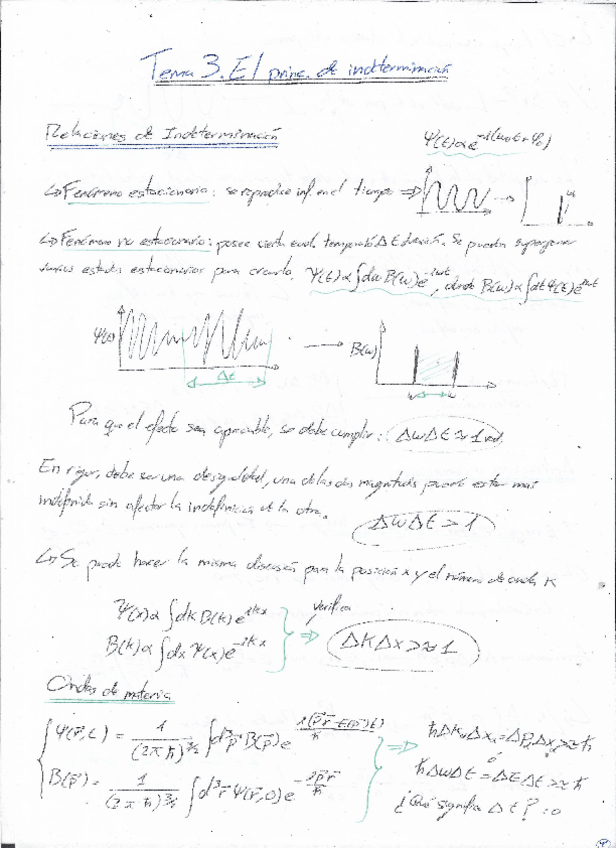 Tema 3. El princ. de indeterminación
Relaciones de Indeterminación
Ψ(t) ∝ e^{-i(ω₀t+φ₀)}
↳ Fenómeno estacionario: se reproduce inf. en el tiempo ⇒
↳ Fenómeno no estacionario: posee cierta evol. temporal Δt duración. Se pueden superponer
varios estados estacionarios para crearlo. Ψ(t) ∝ ∫dω B(ω)e^{-iωt}, donde B(ω) ∝ ∫dt Ψ(t)e^{iωt}
Ψ(t)
Δt
B(ω)
Para que el efecto sea apreciable, se debe cumplir: ΔωΔt ≈ 1
En rigor, debe ser una desigualdad, una de las dos magnitudes puede estar más
indefinida sin afectar la indefinición de la otra.
ΔωΔt > 1
↳ Se puede hacer la misma discusión para la posición x y el número de onda K
Ψ(x) ∝ ∫dk B(k)e^{ikx}
verifica
B(k) ∝ ∫dx Ψ(x)e^{-ikx}
⇒ ΔKΔx >≈ 1
Ondas de materia
Ψ(r⃗,t) = 1/(2πħ)^{3/2} ∫d³p⃗ B(p⃗)e^{i(p⃗r⃗-E(p)t)/ħ}
⇒ ħΔKₓΔx = ΔPₓΔx >≈ ħ
B(p⃗) = 1/(2πħ)^{3/2} ∫d³r⃗ Ψ(r⃗,0)e^{-ip⃗r⃗/ħ}
ħΔωΔt = ΔEΔt >≈ ħ
¿Qué significa Δt? :o